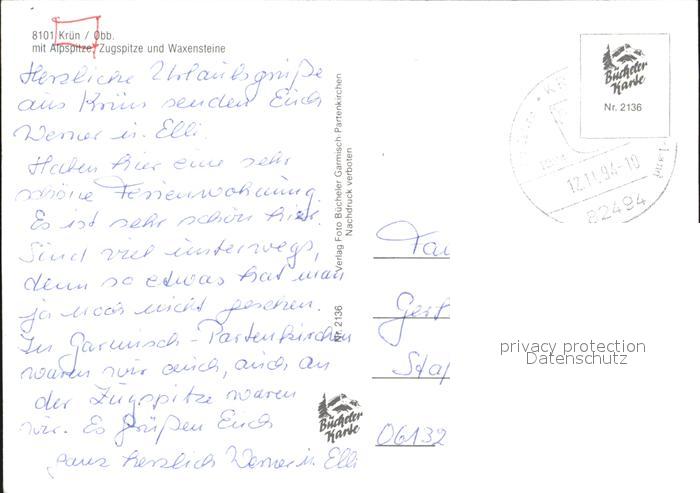 8101 Krün / Obb.
mit Alpspitze, Zugspitze und Waxensteine
Herzliche Urlaubsgrüße
aus Krün senden Euch
Werner u. Elli.
Haben hier eine sehr
schöne Ferienwohnung.
Es ist sehr schön hier.
Sind viel unterwegs,
denn so etwas hat man
ja noch nicht gesehen.
In Garmisch-Partenkirchen
waren wir auch, auch an
der Zugspitze waren
wir. Es grüßen Euch
ganz herzlich Werner u. Elli
Verlag Foto Bücheler Garmisch-Partenkirchen
Nachdruck verboten
Nr. 2136
Bücheler
Karte
Bücheler
Karte
Nr. 2136
12.11.94-10
82494
Fam
Gert
Staß
06132
privacy protection
Datenschutz